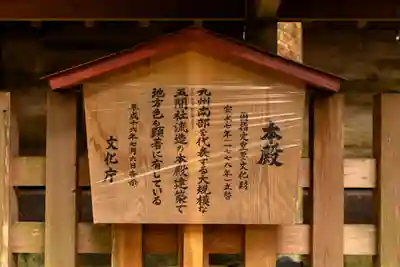 本殿
国指定重要文化財
安永七年(一七七八年)上棟
九州南部を代表する大規模な
五間社流造の本殿建築で
地方色も顕著に有している
平成十六年七月六日告示
文化庁